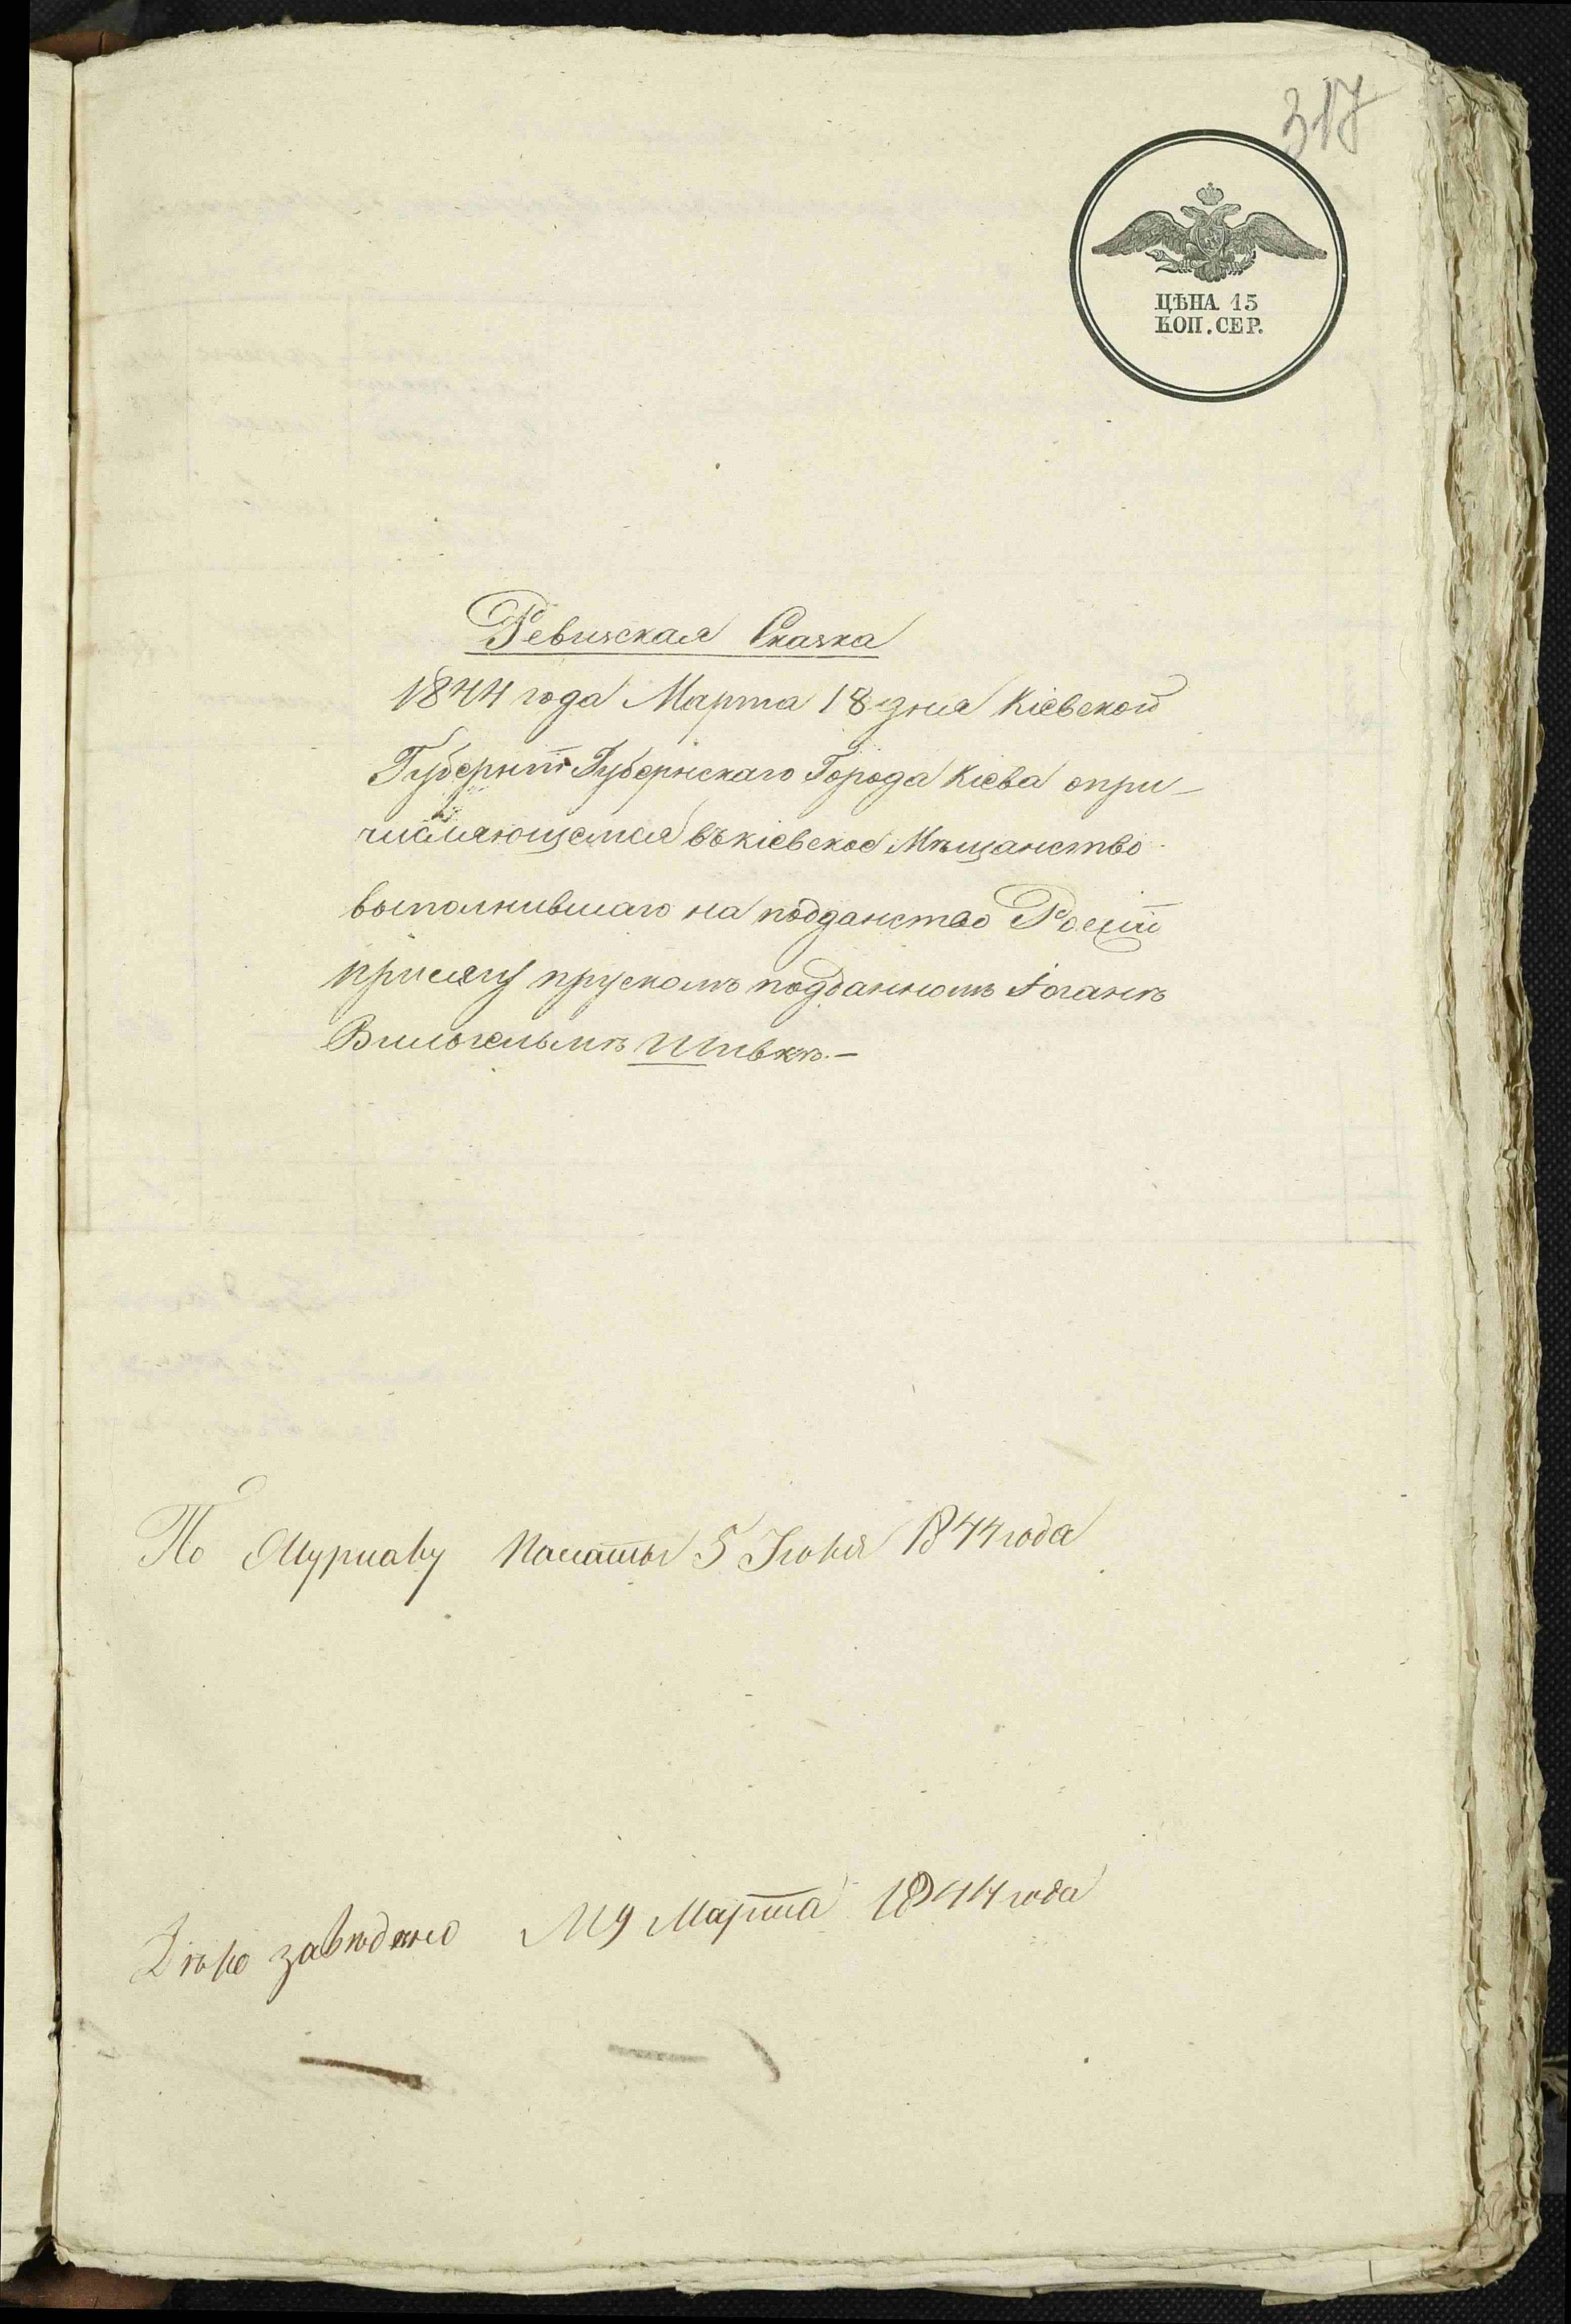 317
ЦѢНА 15
КОП. СЕР.
Ревизская Сказка
1844 года Марта 18 дня Кіевской
Губерніи Губернскаго Города Кіева опри-
числяющемся въ кіевское Мѣщанство
выполнившаго на подданство Росіи
присягу прускомъ подданномъ Іоганѣ
Вильгельмѣ Шивкѣ.—
По Журналу Палаты 5 Іюня 1844 года
Дѣло заведено 19 Марта 1844 года